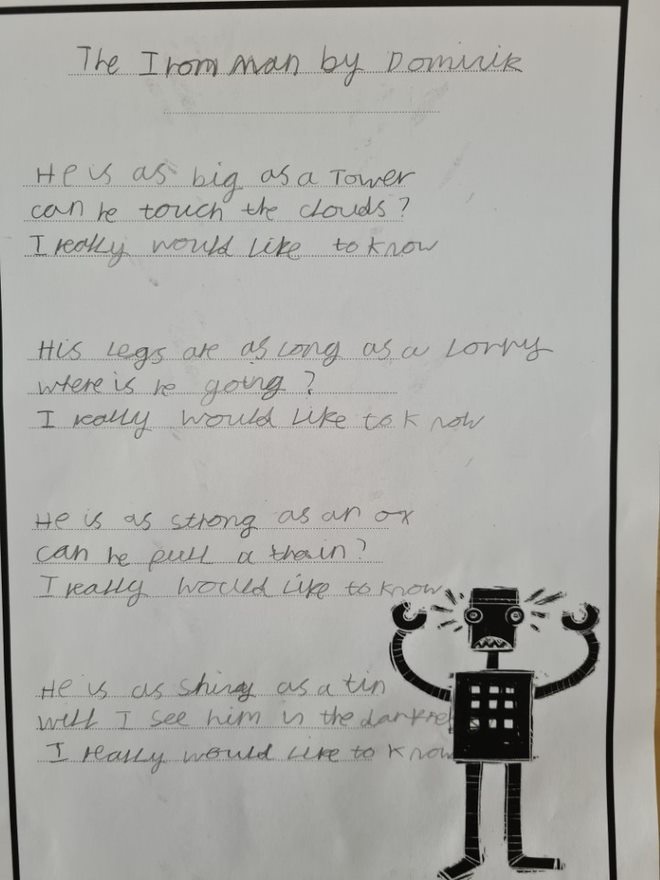 The Iron man by Dominik
He is as big as a Tower
can he touch the clouds?
I really would like to know
His Legs are as long as a Lorry
where is he going?
I really would like to know
He is as strong as an ox
can he pull a train?
I really would like to know
He is as shiny as a tin
will I see him in the
I really would like to know